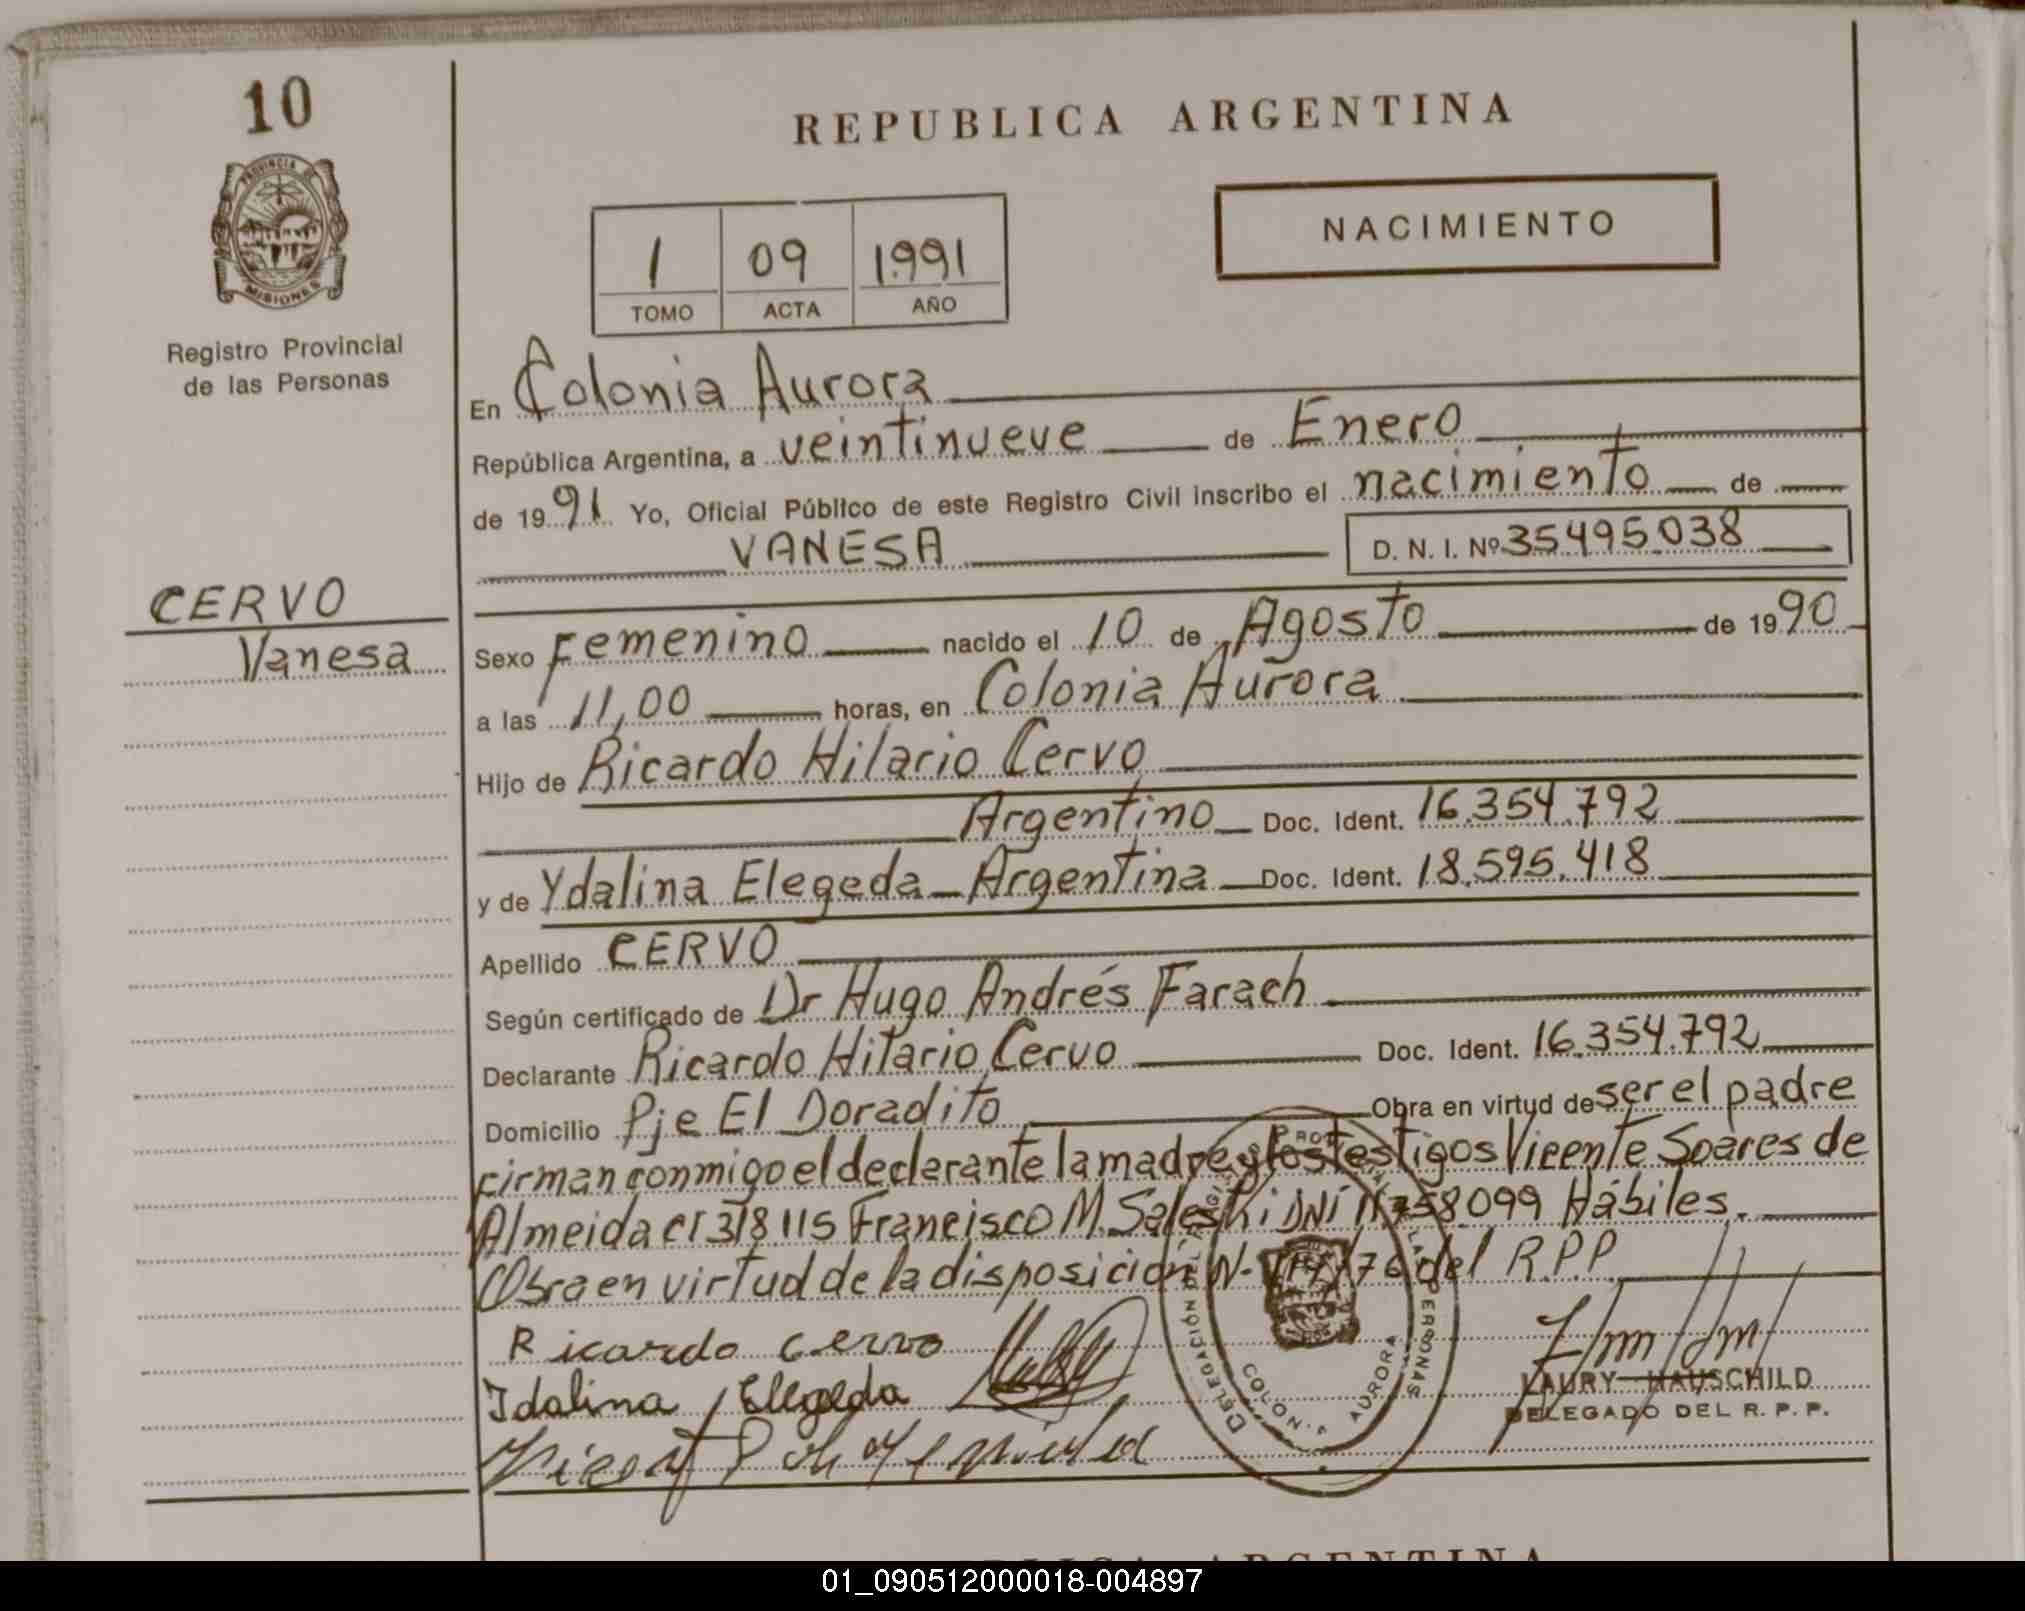 10
PROVINCIA DE
MISIONES
Registro Provincial
de las Personas
REPUBLICA ARGENTINA
NACIMIENTO
1 09 1991
TOMO ACTA AÑO
En Colonia Aurora
República Argentina, a veintinueve de Enero
de 1991 Yo, Oficial Público de este Registro Civil inscribo el nacimiento de
VANESA D. N. I. Nº 35495038
CERVO
Vanesa
Sexo Femenino nacido el 10 de Agosto de 1990
a las 11,00 horas, en Colonia Aurora
Hijo de Ricardo Hilario Cervo
Argentino Doc. Ident. 16.354.792
y de Ydalina Elegeda - Argentina Doc. Ident. 18.595.418
Apellido CERVO
Según certificado de Dr Hugo Andrés Farach
Declarante Ricardo Hilario Cervo Doc. Ident. 16.354.792
Domicilio Pje El Doradito Obra en virtud de ser el padre
firman conmigo el declarante la madre y los testigos Vicente Soares de
Almeida CI 318115 Francisco M. Saleski DNI 11758.099 Hábiles.
Obra en virtud de la disposición N- /76 del R.P.P.
Ricardo Cervo
Idalina Elegeda
LAURY HAUSCHILD
DELEGADO DEL R. P. P.
DELEGACIÓN DEL REGISTRO PROVINCIAL DE LAS PERSONAS
COLONIA AURORA
01_090512000018-004897